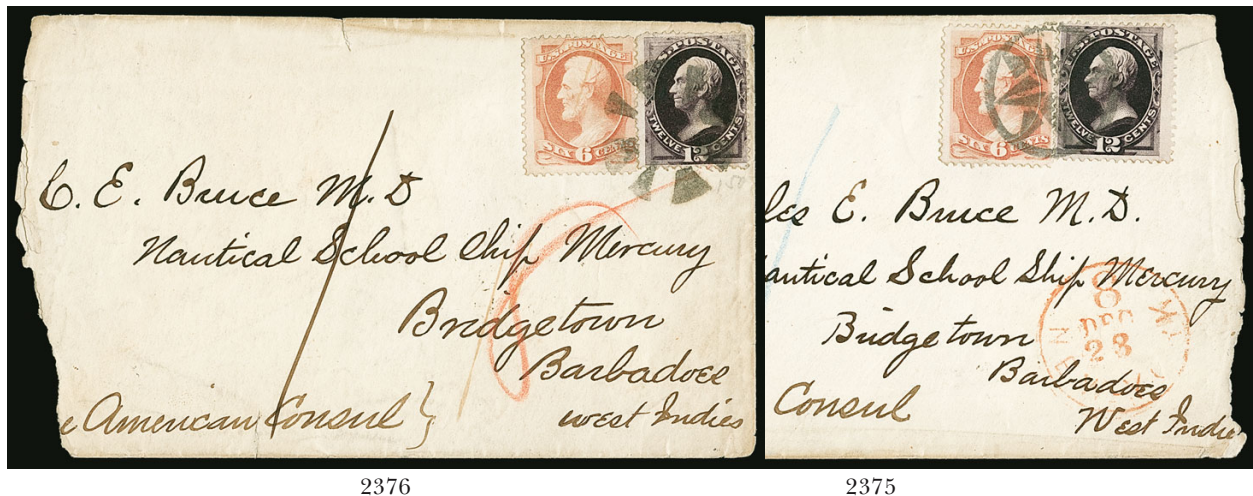 U.S. POSTAGE
SIX 6 CENTS
U.S. POSTAGE
TWELVE 12 CENTS
C. E. Bruce M.D
Nautical School Ship Mercury
Bridgetown
Barbadoes
West Indies
American Consul}
2376
U.S. POSTAGE
SIX 6 CENTS
U.S. POSTAGE
TWELVE 12 CENTS
les E. Bruce M.D.
autical School Ship Mercury
Bridgetown
Barbadoes
Consul
West Indie
8
DEC
23
2375